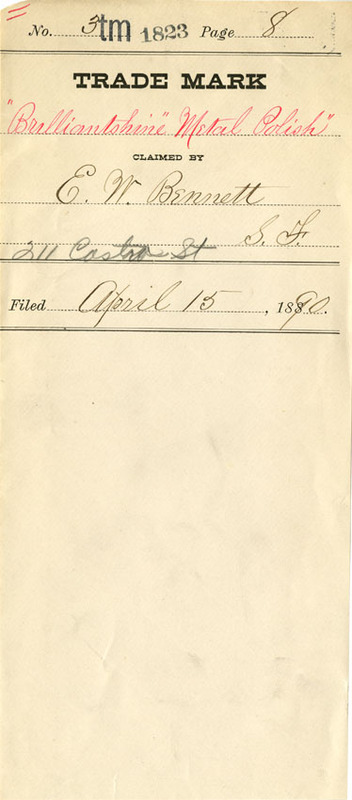 No. 3 tm 1823 Page 8
TRADE MARK
"Brilliantshine" Metal Polish"
CLAIMED BY
E. W. Bennett
S. F.
211 Castro St
Filed April 15, 1890.